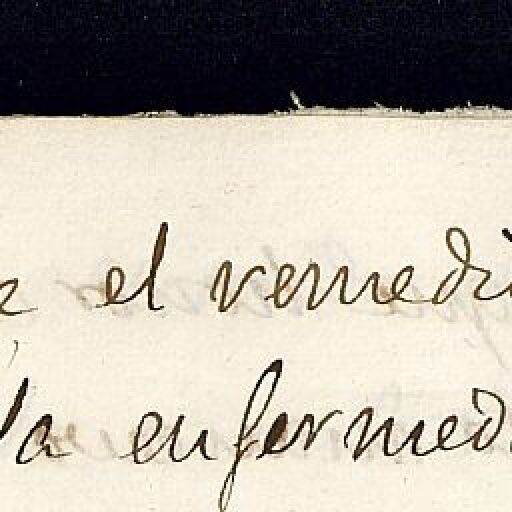 el remedi
la enfermed